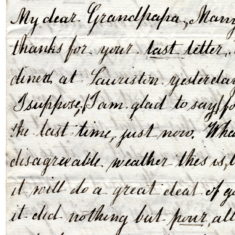 My dear Grandpapa, Many
thanks for your last letter,
dined, at Lauriston yesterday
I suppose, I am glad to say, fo
the last time, just now. Wha
disagreeable weather this is,
it will do a great deal of g
it did nothing but pour, al